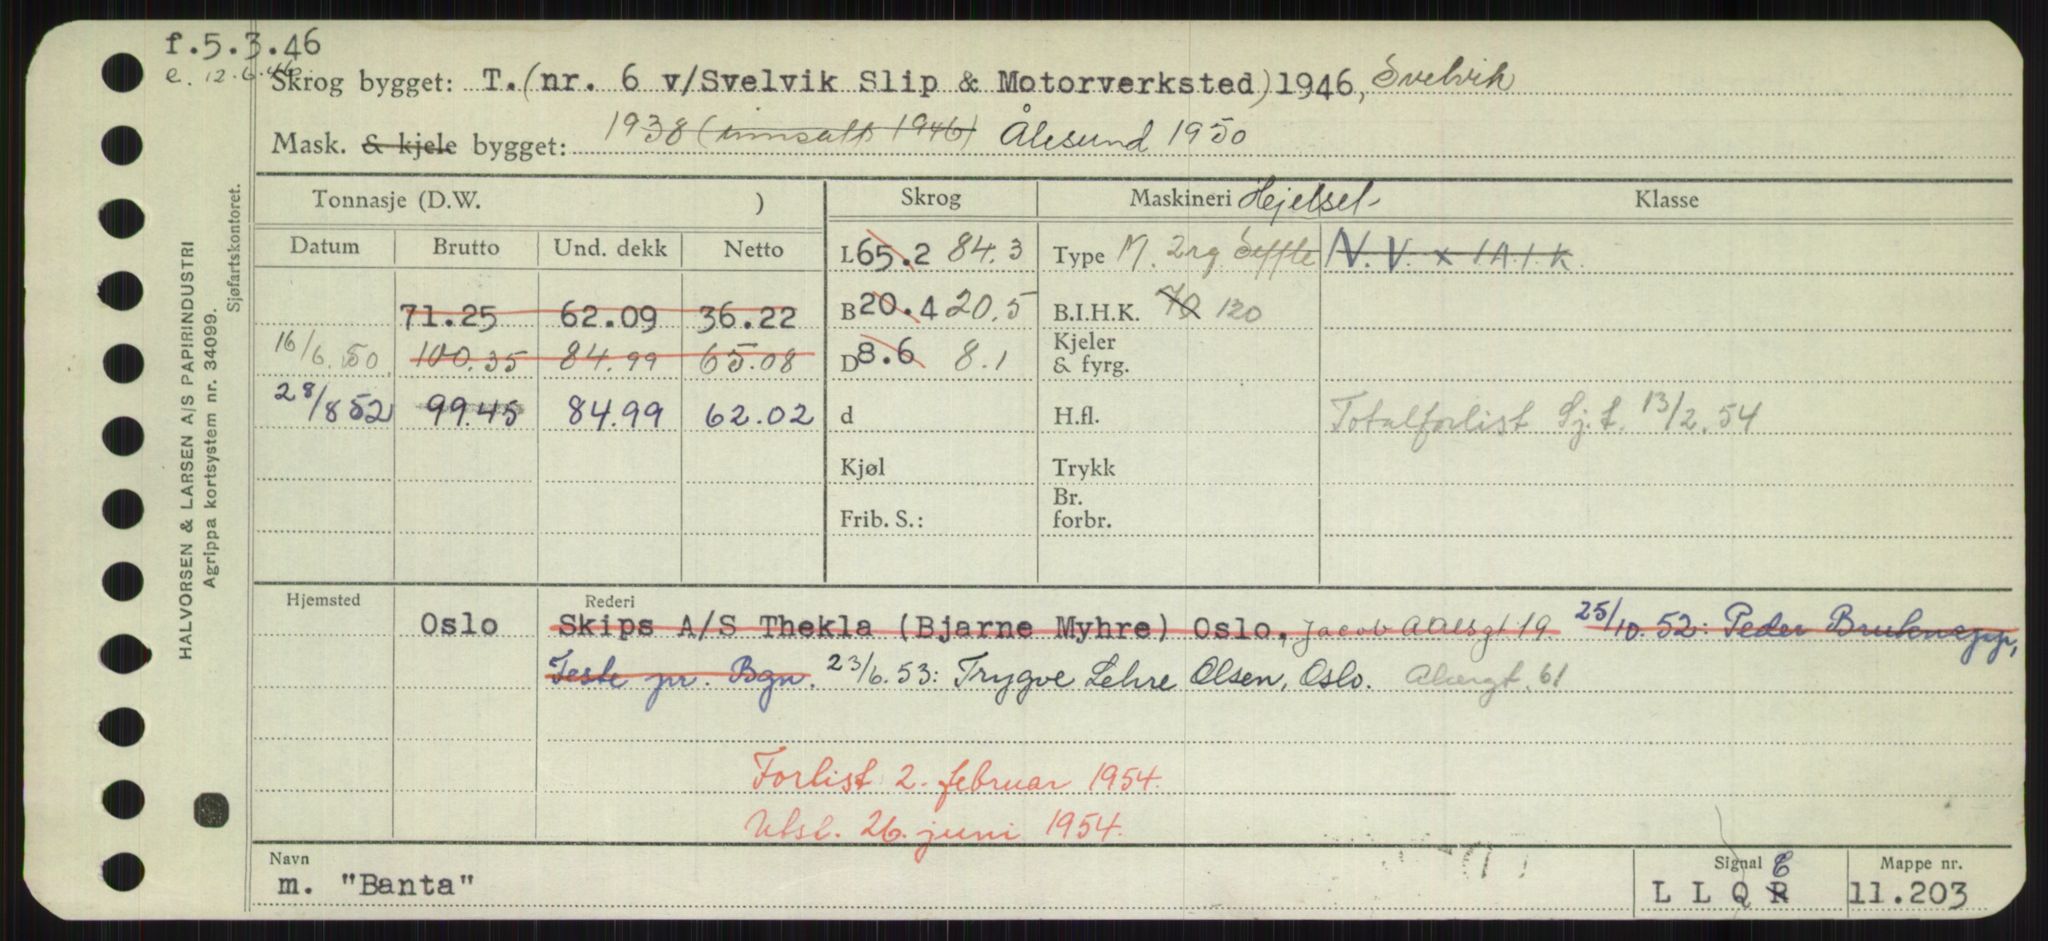 f.5.3.46
e. 12.6.46.
Skrog bygget: T. (nr. 6 v/Svelvik Slip & Motorverksted) 1946, Svelvik
Mask. & kjele bygget: 1938 (innsatt 1946) Ålesund 1950
Tonnasje (D.W. ) Skrog Maskineri Hjelsel- Klasse
Datum Brutto Und. dekk Netto L 65.2 84.3 Type M. 2rg Seffle N.V. x 1A1.K.
71.25 62.09 36.22 B 20.4 20.5 B.I.H.K. 70 120
16/6.50. 100.35 84.99 65.08 D 8.6 8.1 Kjeler
& fyrg.
28/8 52 99.45 84.99 62.02 d H.fl. Totalforlist Sj.t. 13/2.54
Kjøl Trykk
Br.
Frib. S.: forbr.
Hjemsted Rederi
Oslo Skips A/S Thekla (Bjarne Myhre) Oslo, Jacob Aallsgt 19 25/10.52: Peder
pr. Bgn. 23/6.53: Trygve Lehre Olsen, Oslo. 61
Forlist 2. februar 1954.
Utsl. 26. juni 1954.
Navn Signal Mappe nr.
m. "Banta" L L Q R E 11.203
HALVORSEN & LARSEN A/S PAPIRINDUSTRI
Agrippa kortsystem nr. 34099.
Sjøfartskontoret.